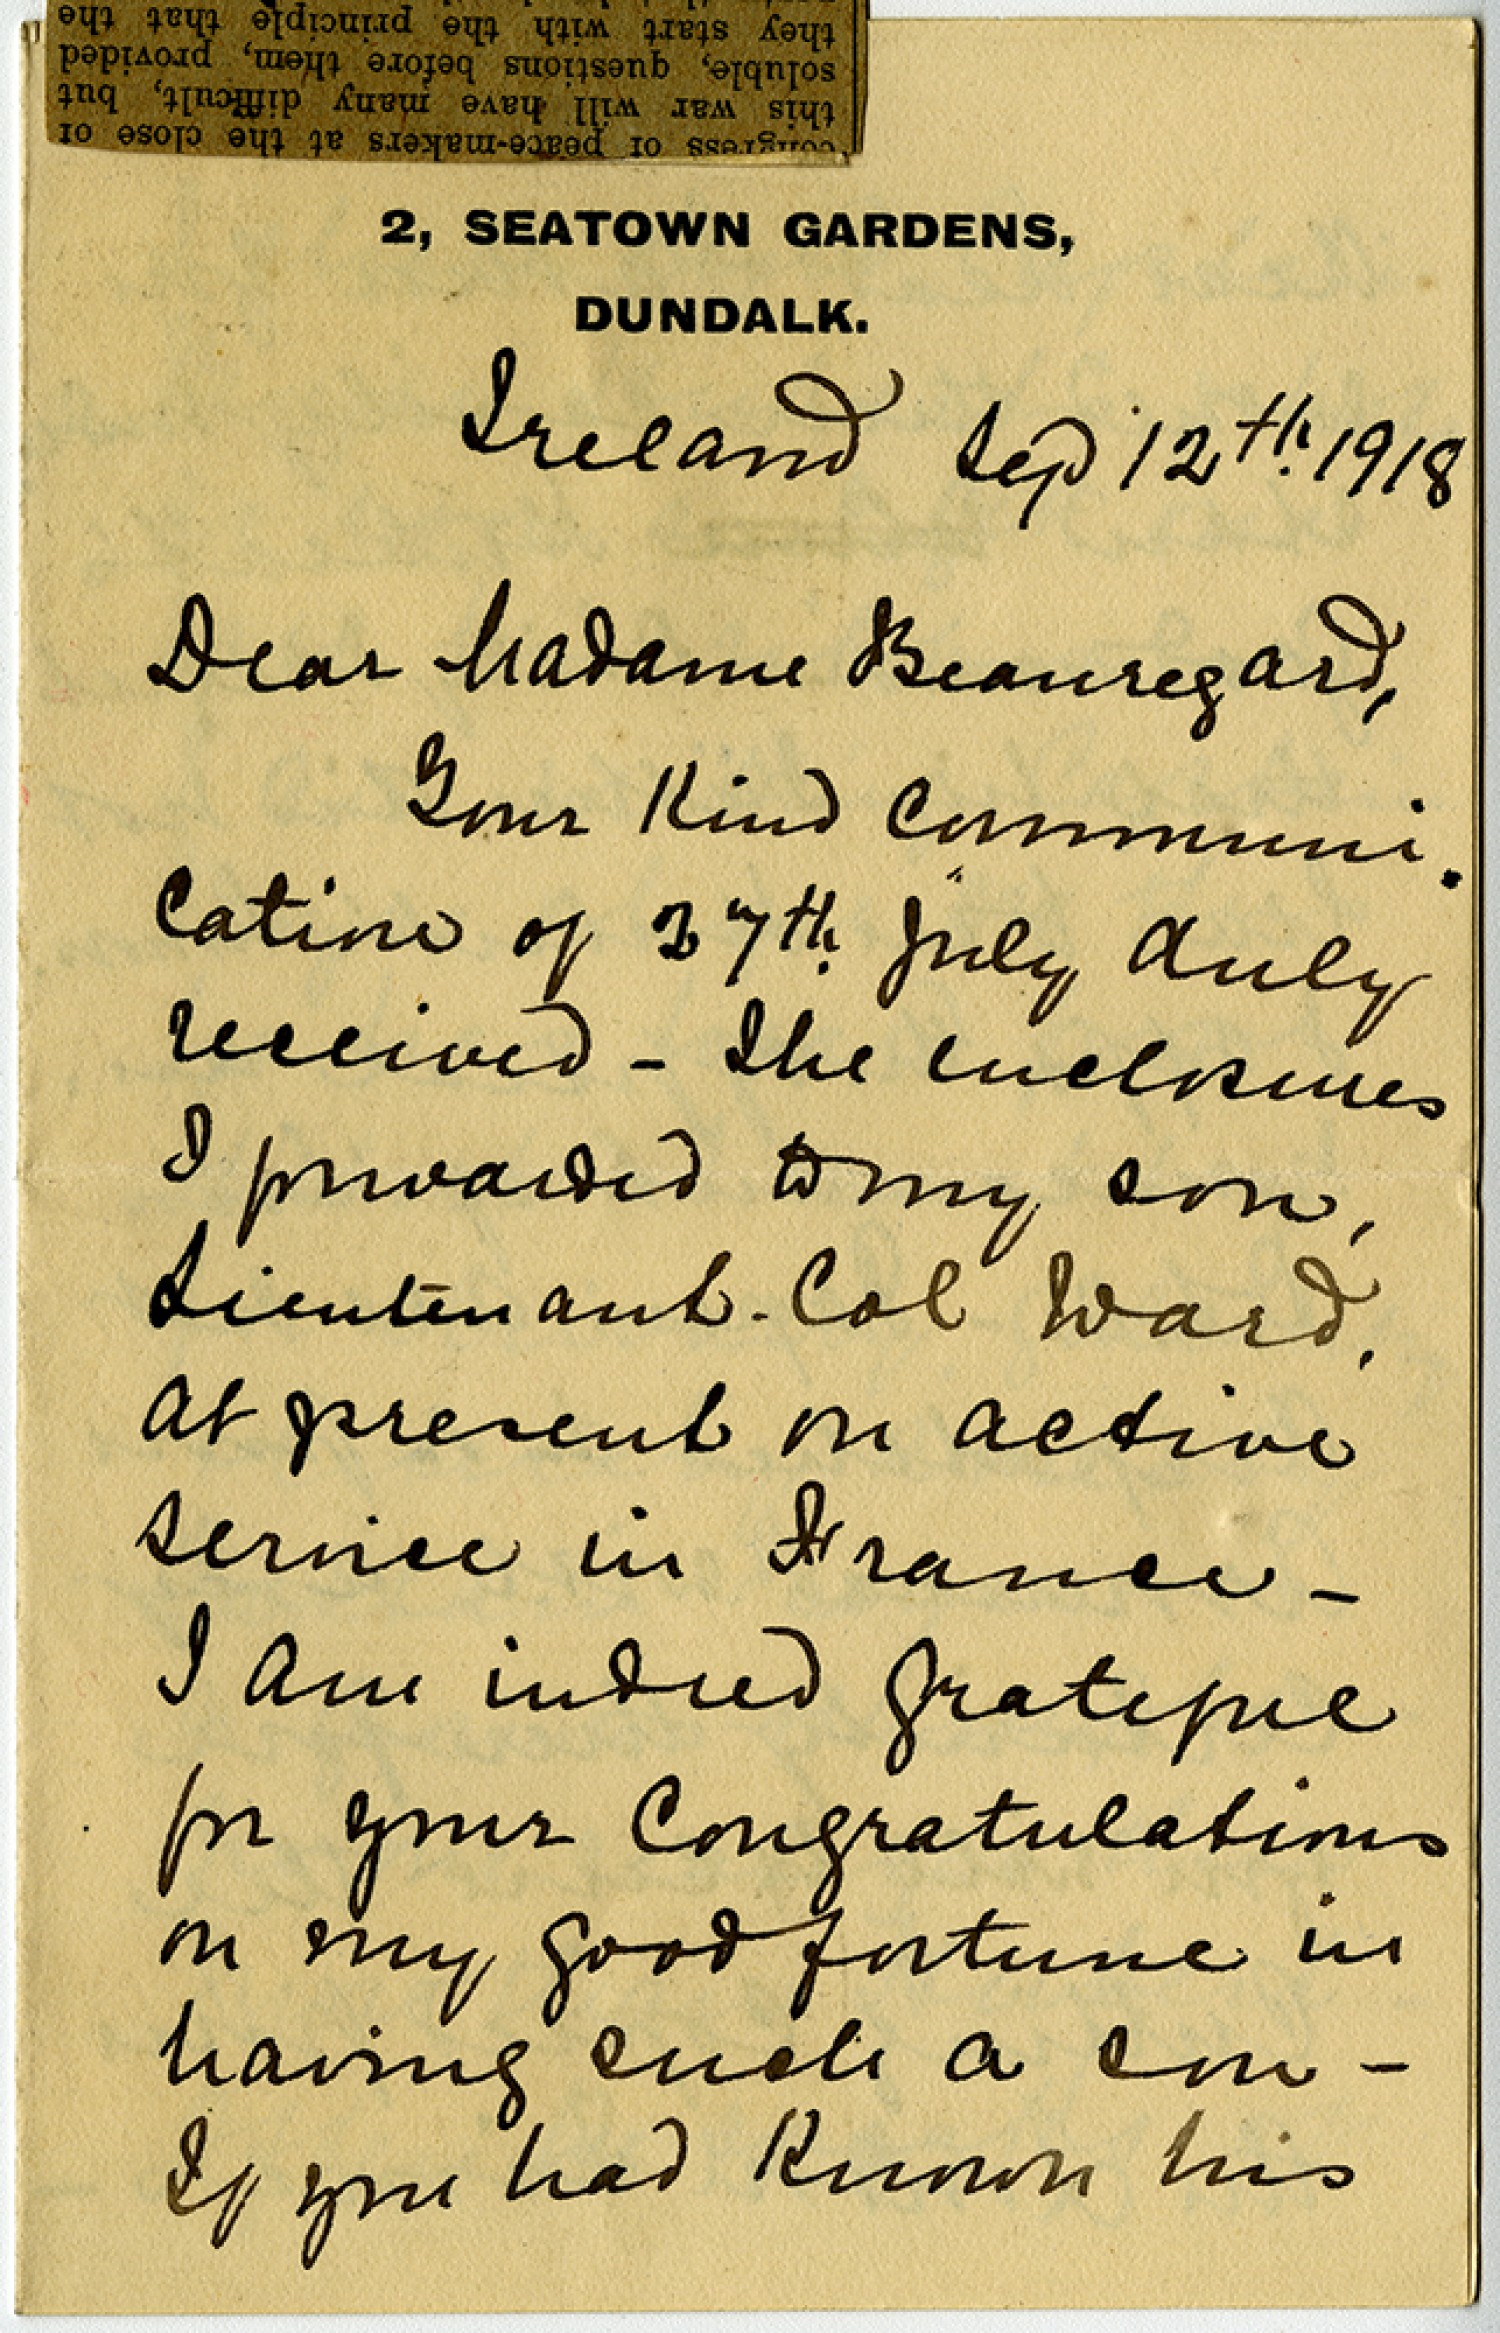 they start with the principle that the
soluble, questions before them, provided
this war will have many difficult, but
congress of peace-makers at the close of
2, SEATOWN GARDENS,
DUNDALK.
Ireland Sep 12th. 1918
Dear Madame Beauregard,
Your Kind Communi.
cation of 27th. July duly
received - The enclosures
I forwarded to my son,
Lieutenant-Col Ward,
at present on active
service in France -
I am indeed grateful
for your Congratulations
on my good fortune in
having such a son -
If you had Known his